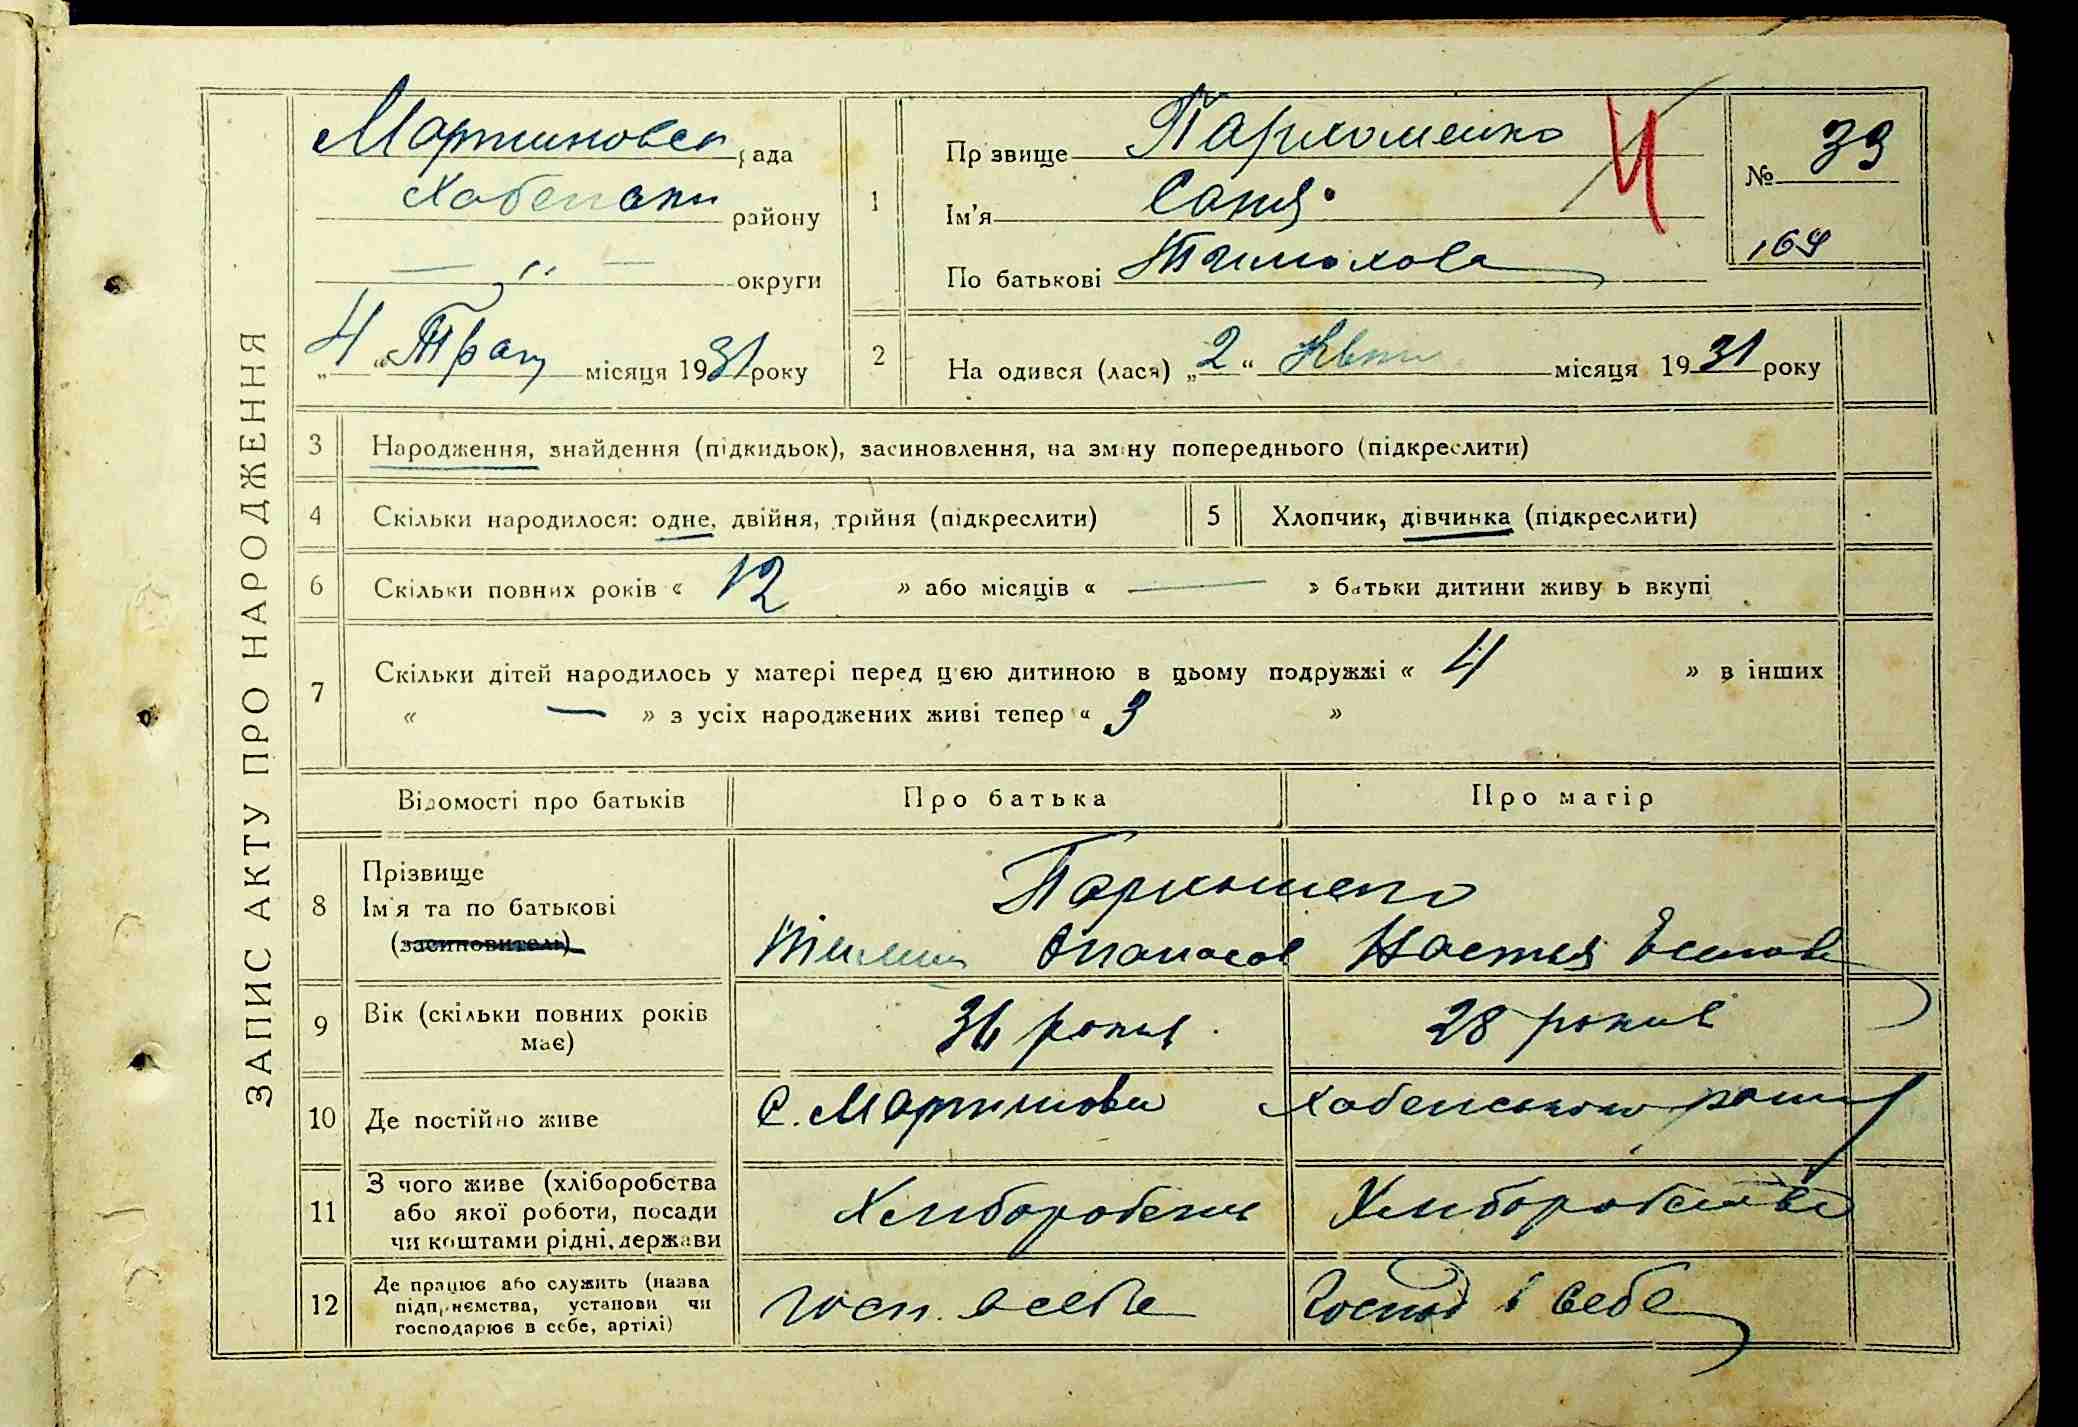 ЗАПИС АКТУ ПРО НАРОДЖЕННЯ
Мартиновск рада
Хабенски району
— „ — округи
„4“ Трав місяця 1931 року
1
Прізвище Пархоменко
Ім'я Соня
По батькові Тимохова
И
№ 39
164
2
На одився (лася) „2“ Квт місяця 1931 року
3 Народження, знайдення (підкидьок), засиновлення, на зміну попереднього (підкреслити)
4 Скільки народилося: одне, двійня, трійня (підкреслити)
5 Хлопчик, дівчинка (підкреслити)
6 Скільки повних років « 12 » або місяців « — » батьки дитини живу ь вкупі
7 Скільки дітей народилось у матері перед цією дитиною в цьому подружжі « 4 » в інших
« — » з усіх народжених живі тепер « 3 »
Відомості про батьків Про батька Про матір
8 Прізвище
Ім'я та по батькові
(засиновителі)
Пархоменко
Опанасов Настья
9 Вік (скільки повних років
має)
36 років 28 років
10 Де постійно живе
с. Мартинови Хабенського
11 З чого живе (хліборобства
або якої роботи, посади
чи коштами рідні, держави
Хлиборобство
12 Де працює або служить (назва
підприємства, установи чи
господарює в себе, артілі)
госп. в себе Господ в себе